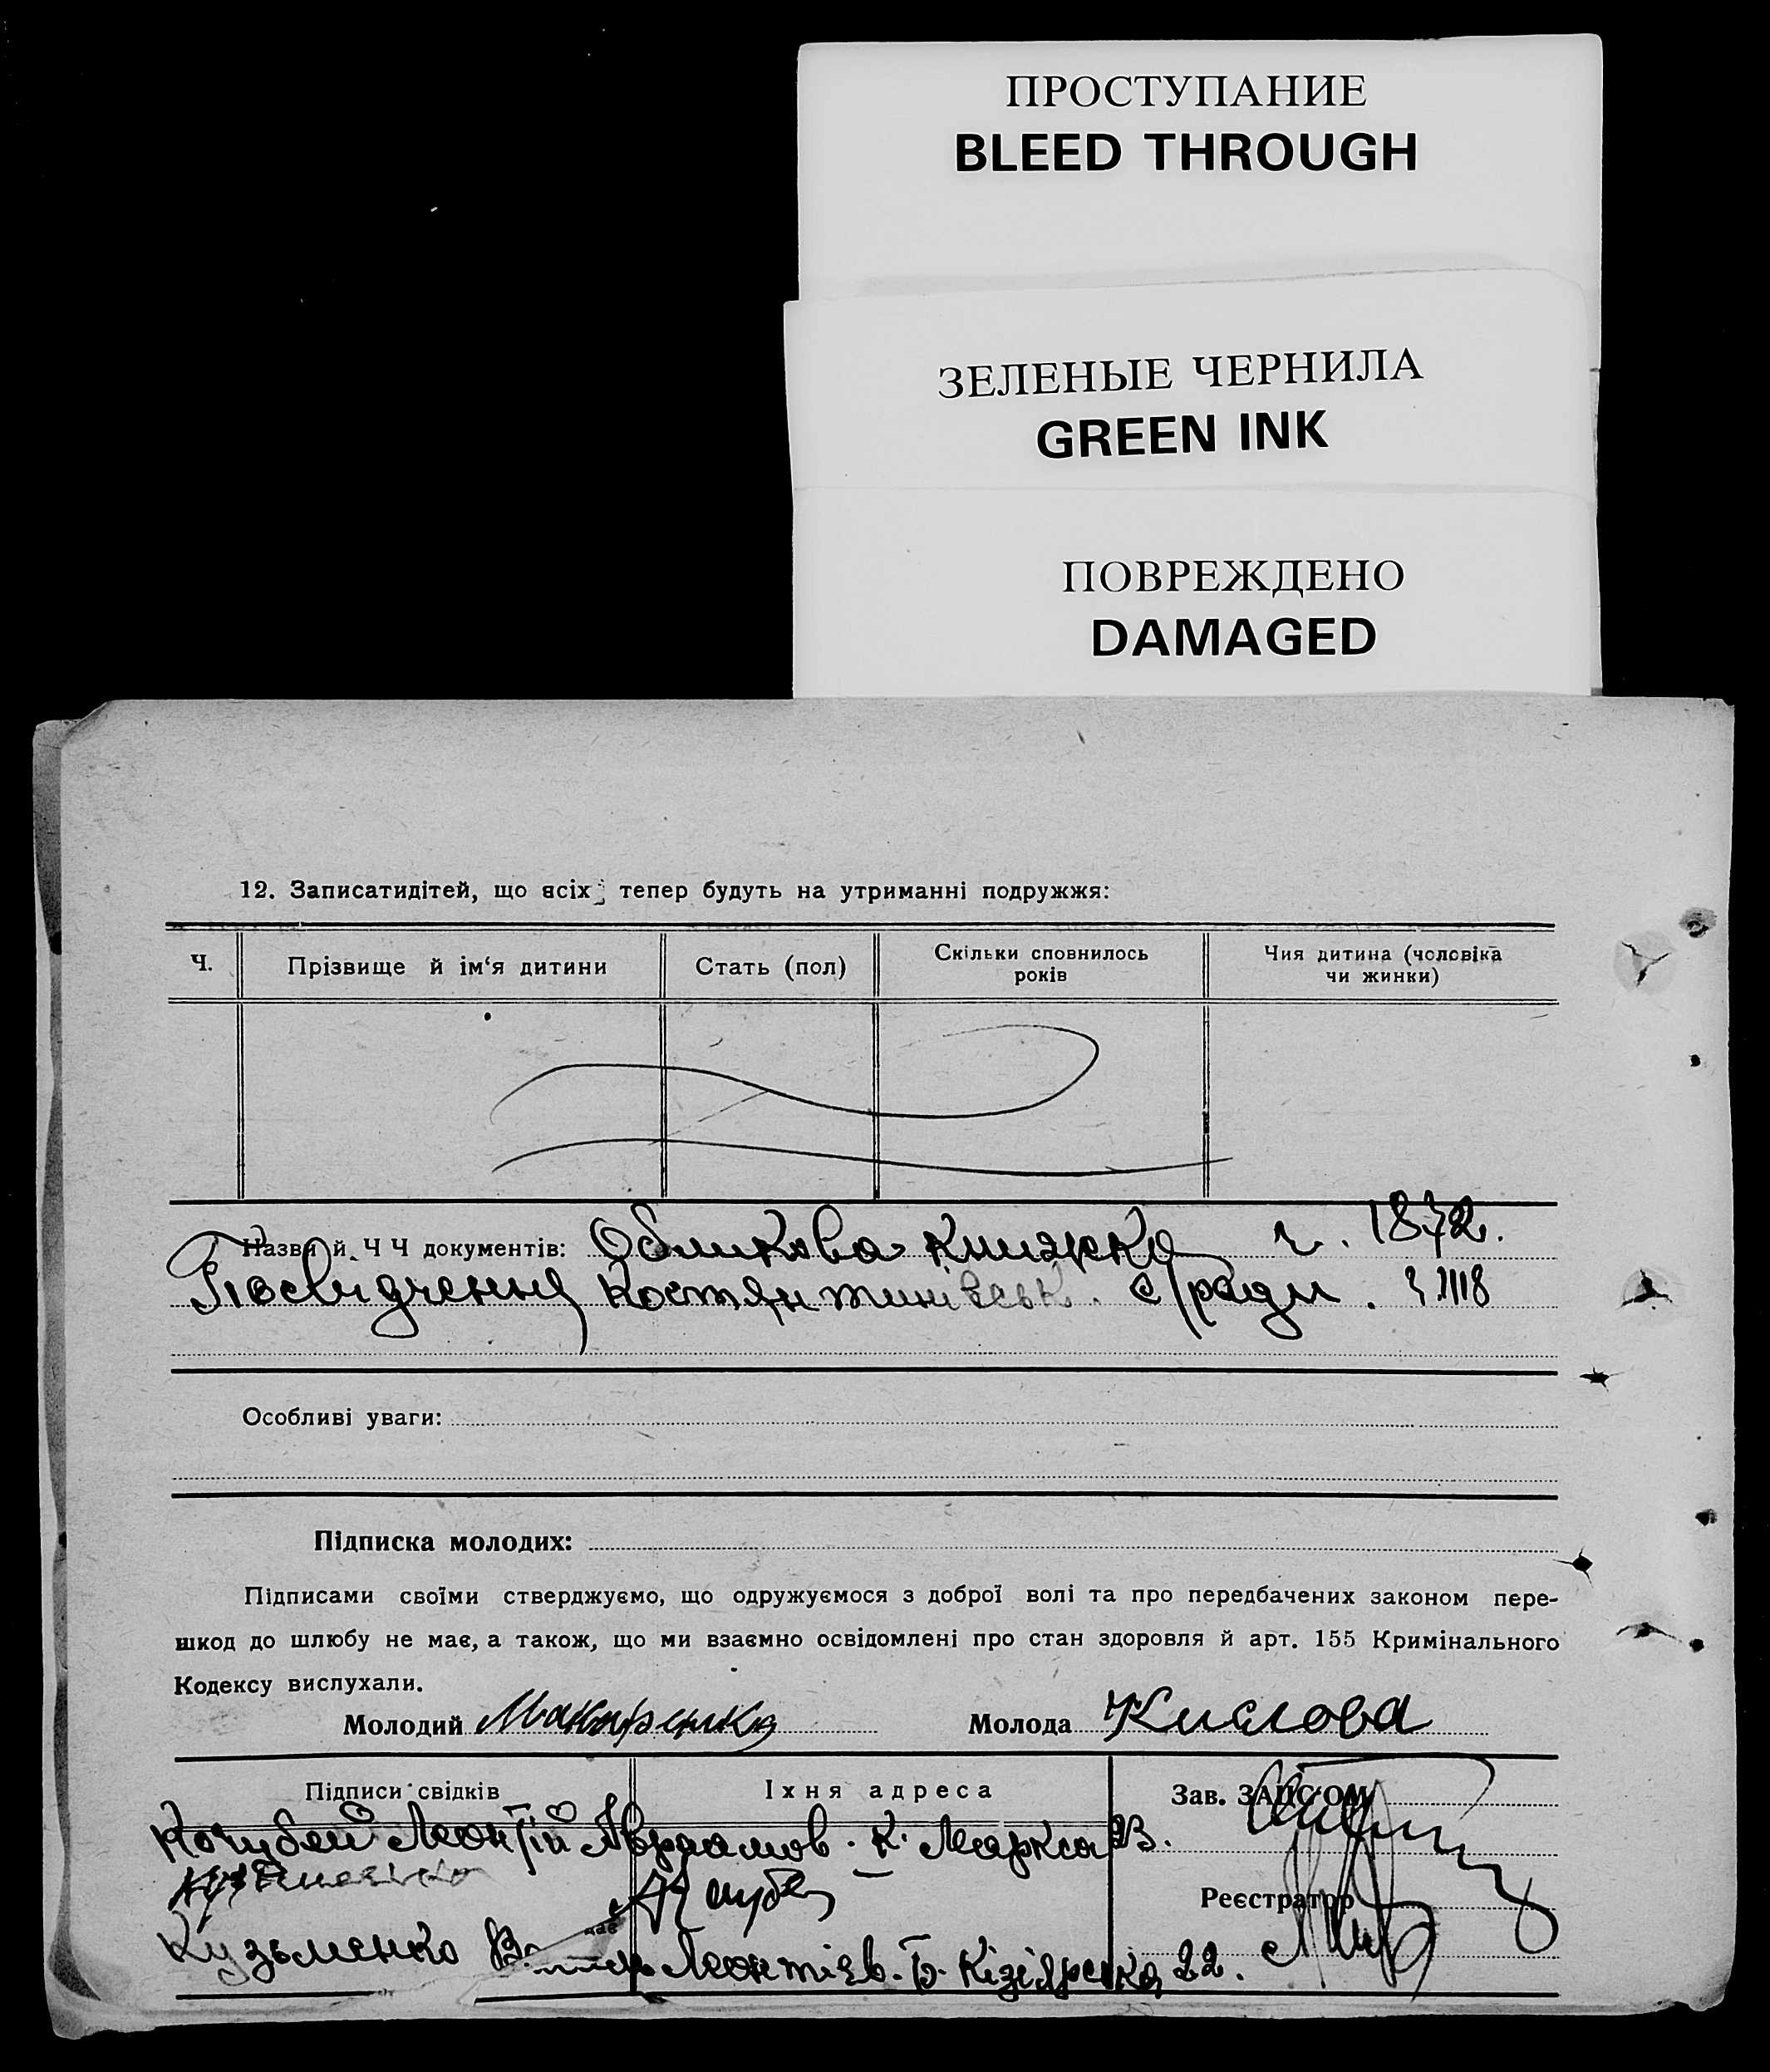 ПРОСТУПАНИЕ
BLEED THROUGH
ЗЕЛЕНЫЕ ЧЕРНИЛА
GREEN INK
ПОВРЕЖДЕНО
DAMAGED
12. Записатидітей, що всіх тепер будуть на утриманні подружжя:
Ч. Прізвище й ім‘я дитини Стать (пол) Скільки сповнилось років Чия дитина (чоловіка чи жинки)
Назви й Ч Ч документів: Облікова книжка ч. 1872.
Посвідчення Костянтинівськ. с/ради. ч 1118
Особливі уваги:
Підписка молодих:
Підписами своїми стверджуємо, що одружуємося з доброї волі та про передбачених законом пере-
шкод до шлюбу не має, а також, що ми взаємно освідомлені про стан здоровля й арт. 155 Кримінального
Кодексу вислухали.
Молодий Молода Кислова
Підписи свідків Їхня адреса Зав. ЗАЦСОМ
Кочубей Леонтій Авраамов. К. Маркса
Реєстратор
Кузьменко Леонтієв. Б. Кізіярська 22.